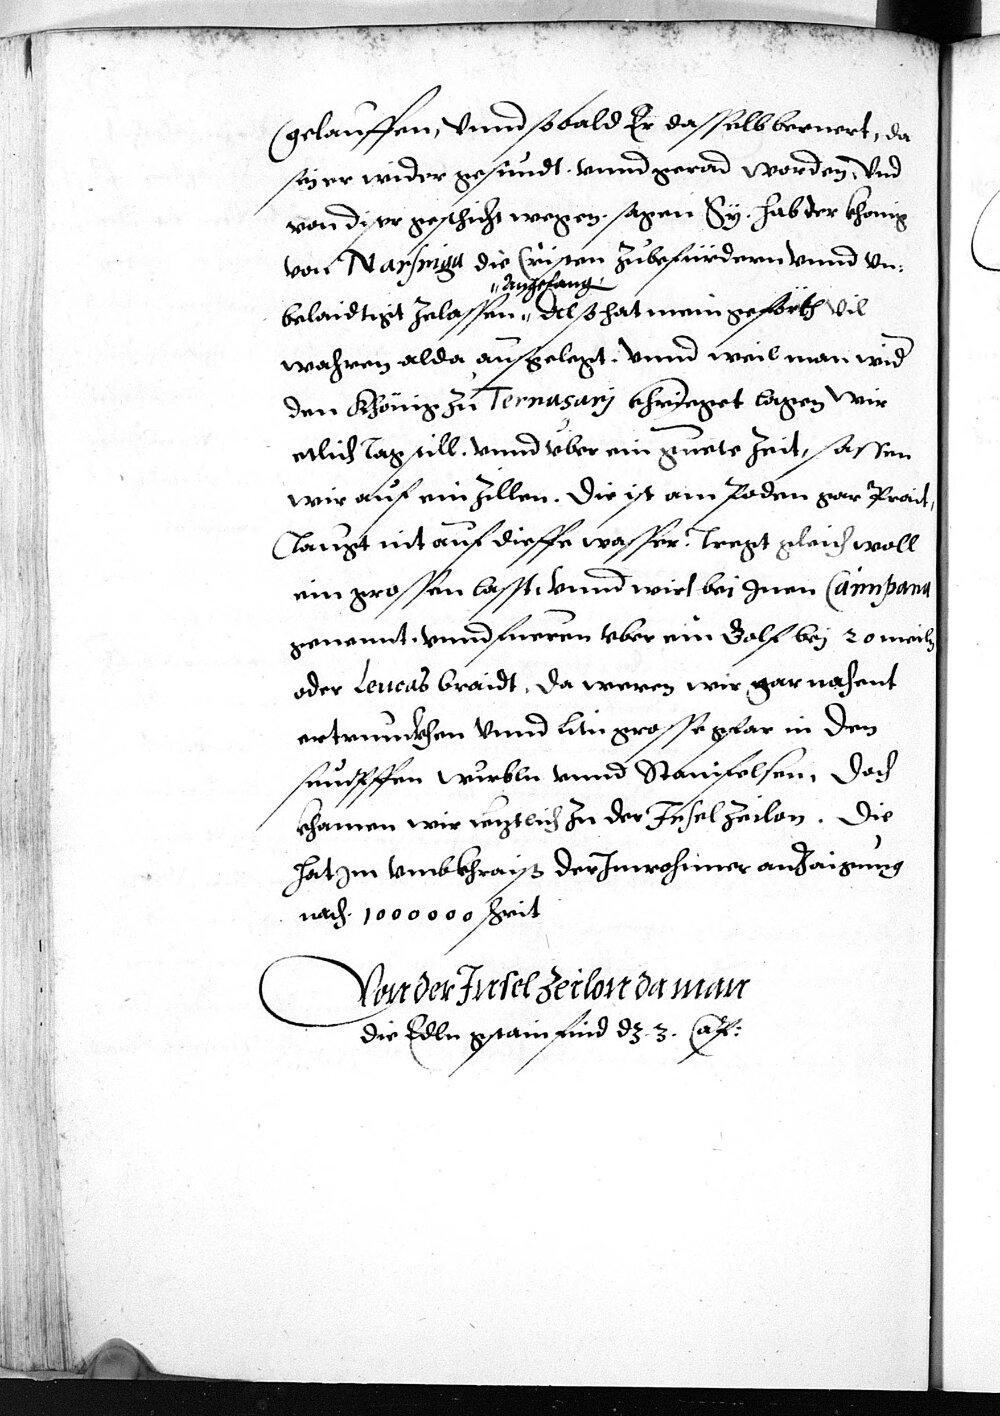 gelauffen, vnnd sobald Er dasselb beruert, da
sej er wider gesundt vnnd gerad worden, Vnd
von diser geschicht wegen, sagen Sy. hab der khonig
von Narsinga die Cristen zubefürdern vnnd vn:
"Anzefang.
belaidtigt zelassen" Alß hat mein geförth vil
wahren alda ausgelegt. vnnd weil man wid
den Khönig zu Ternasarj khrieget lagen wir
etlich Tag still. vnnd vber ein guete Zeit, sassen
wir auf ein Zillen. Die ist am Poden gar Prait,
Taugt nit auf dieffe wasser. Tregt gleich woll
ein grossen lasst, vnnd wirt bei Inen Campana
genennt. vnnd fueren vber ein Golf bej 20 meiln
oder Leucas braidt, da weren wir gar nahent
ertrunckhen vnnd litn grosse gfar in den
wurbln vnnd Stainfelsen, Doch
khamen wir letztlich Zu der Insel Zeilon. Die
hat Im vmbkhraiß der Inwohnner anzaigung
nach 1000000 schrit
Von der Insel Zeilon da man
die Edln gstain find dz 3. Cap: